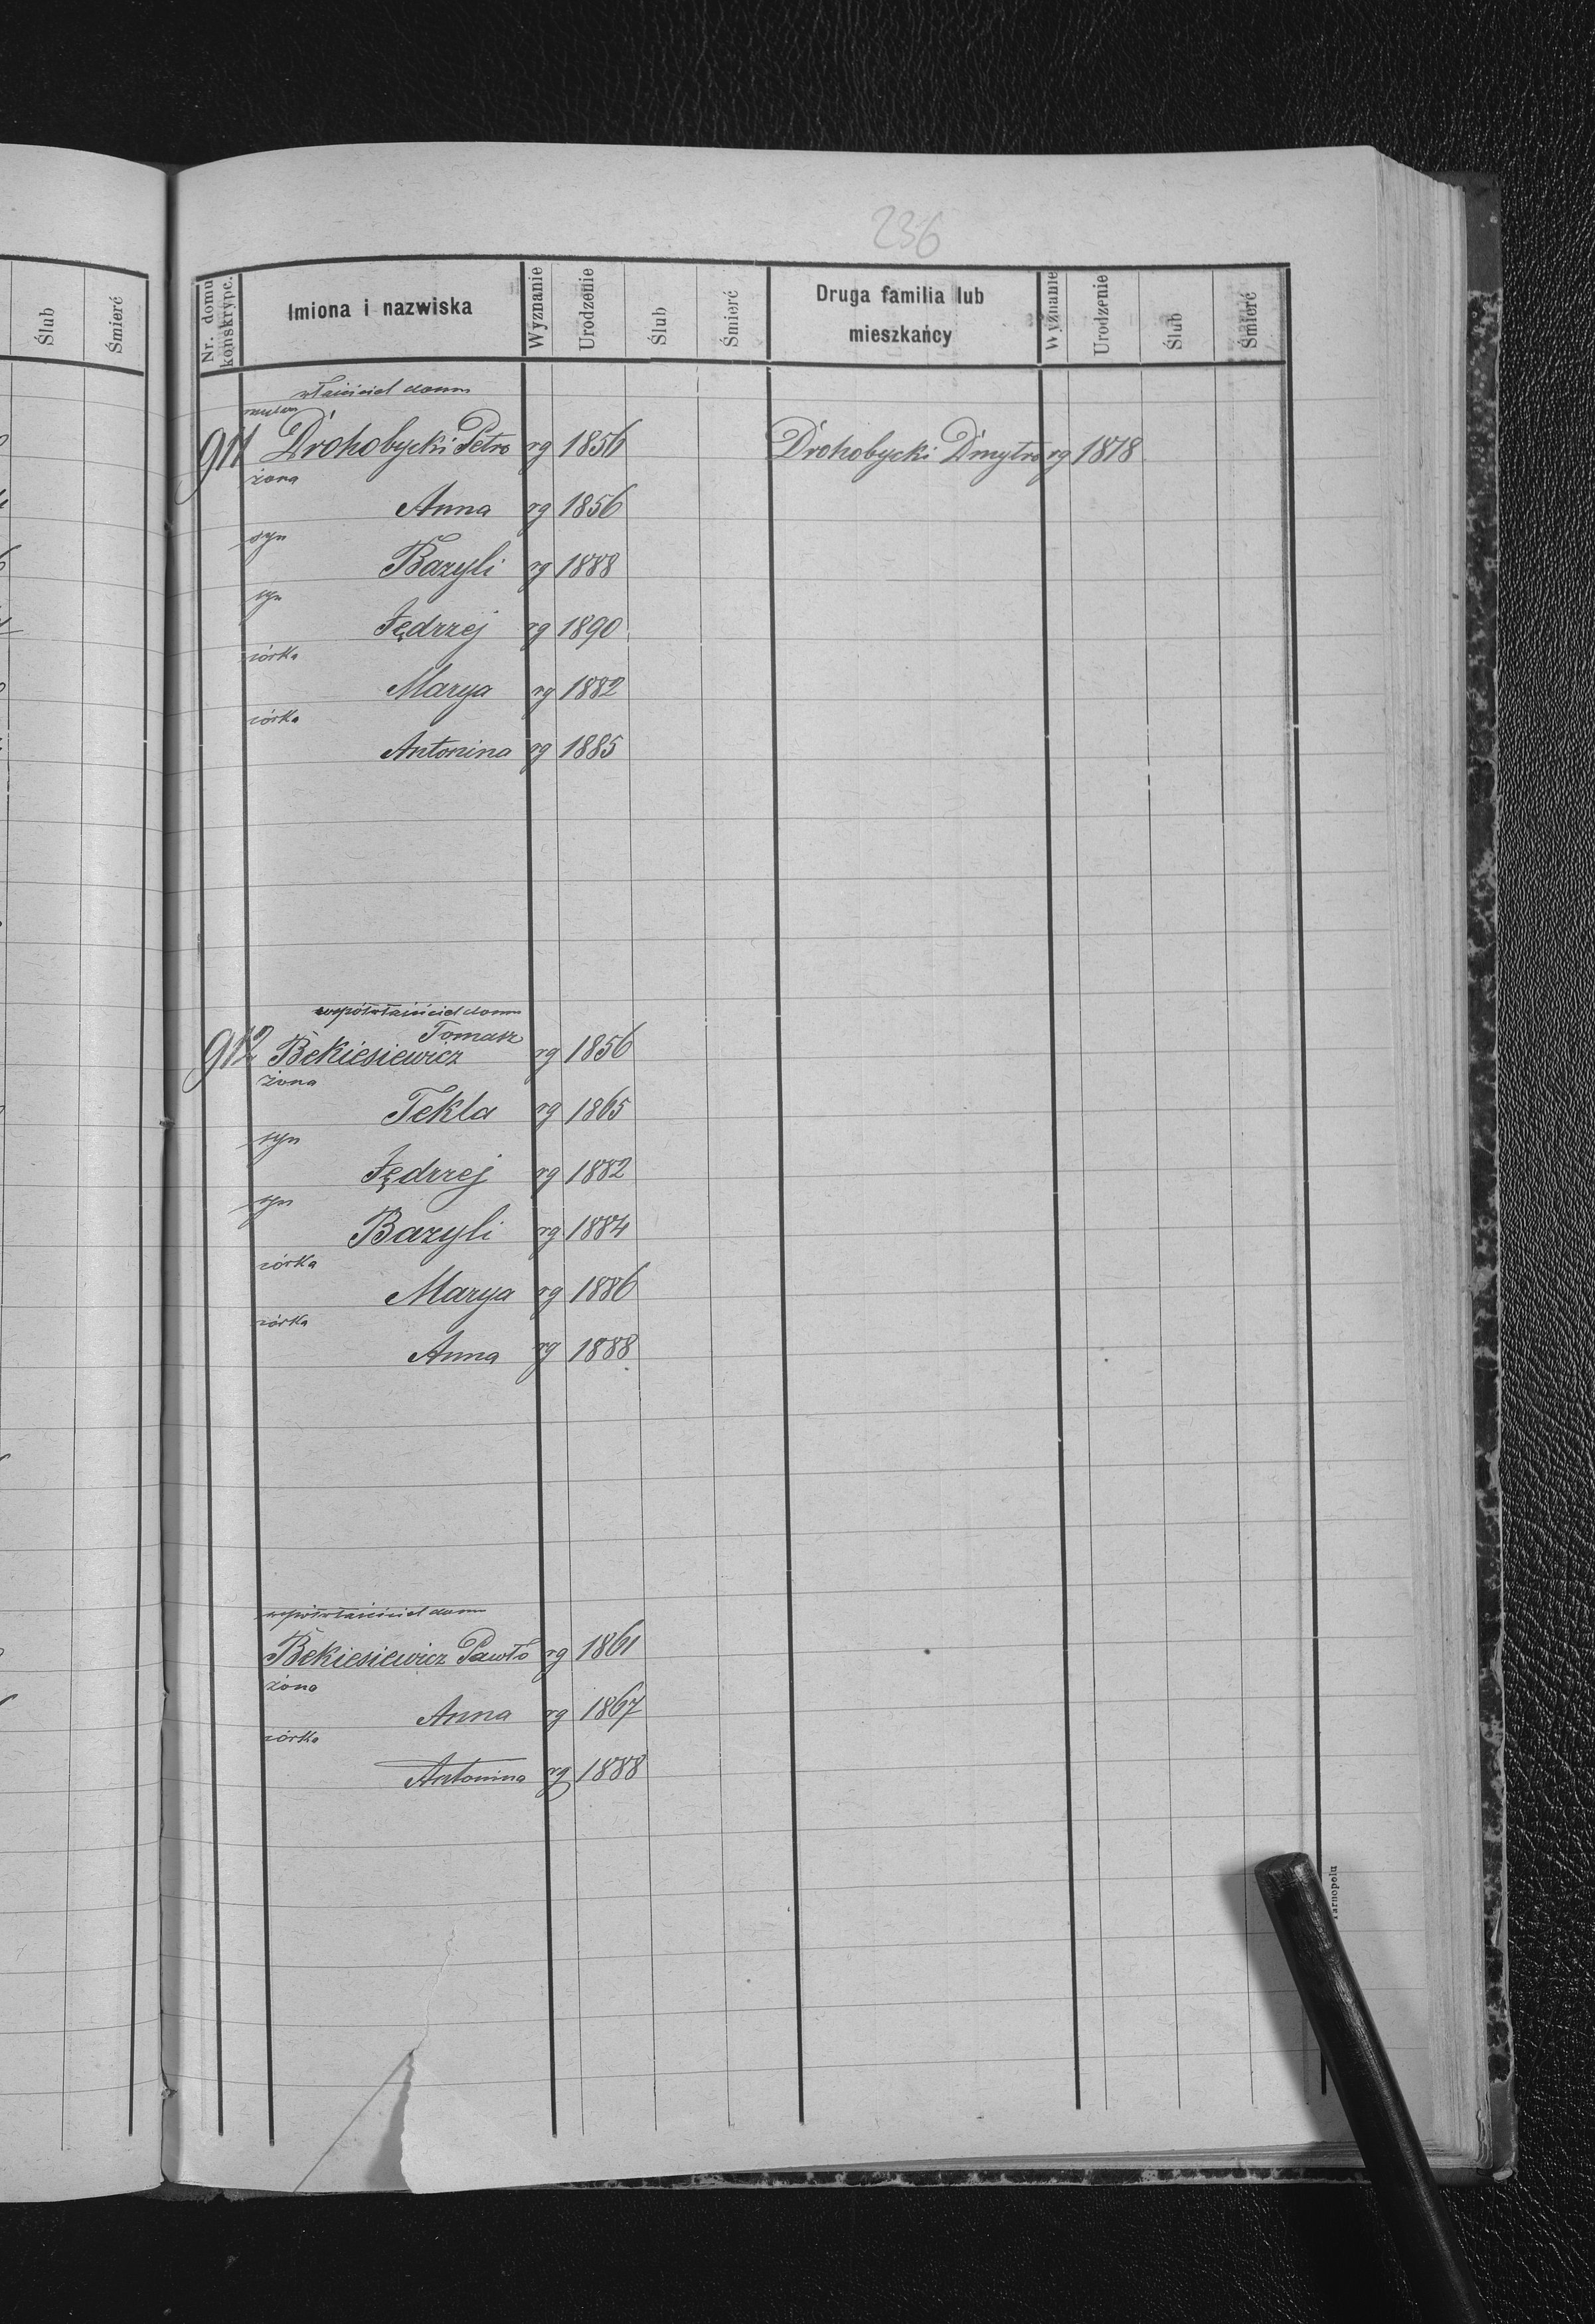 236
Ślub Śmierć
Nr. domu konskrypc. Imiona i nazwiska Wyznanie Urodzenie Ślub Śmierć Druga familia lub mieszkańcy Wyznanie Urodzenie Ślub Śmierć
właściciel domu
911 Drohobycki Petro rg 1856 Drohobycki Dmytro rg 1818
żona
Anna rg 1856
syn
Bazyli rg 1888
syn
Jędrzej rg 1890
córka
Marya rg 1882
córka
Antonina rg 1885
współwłaściciel domu
Tomasz
912 Bekiesiewicz rg 1856
żona
Tekla rg 1865
syn
Jędrzej rg 1882
syn
Bazyli rg 1884
córka
Marya rg 1886
córka
Anna rg 1888
współwłaściciel domu
Bekiesiewicz Pawło rg 1861
żona
Anna rg 1867
córka
Antonina rg 1888
Tarnopolu